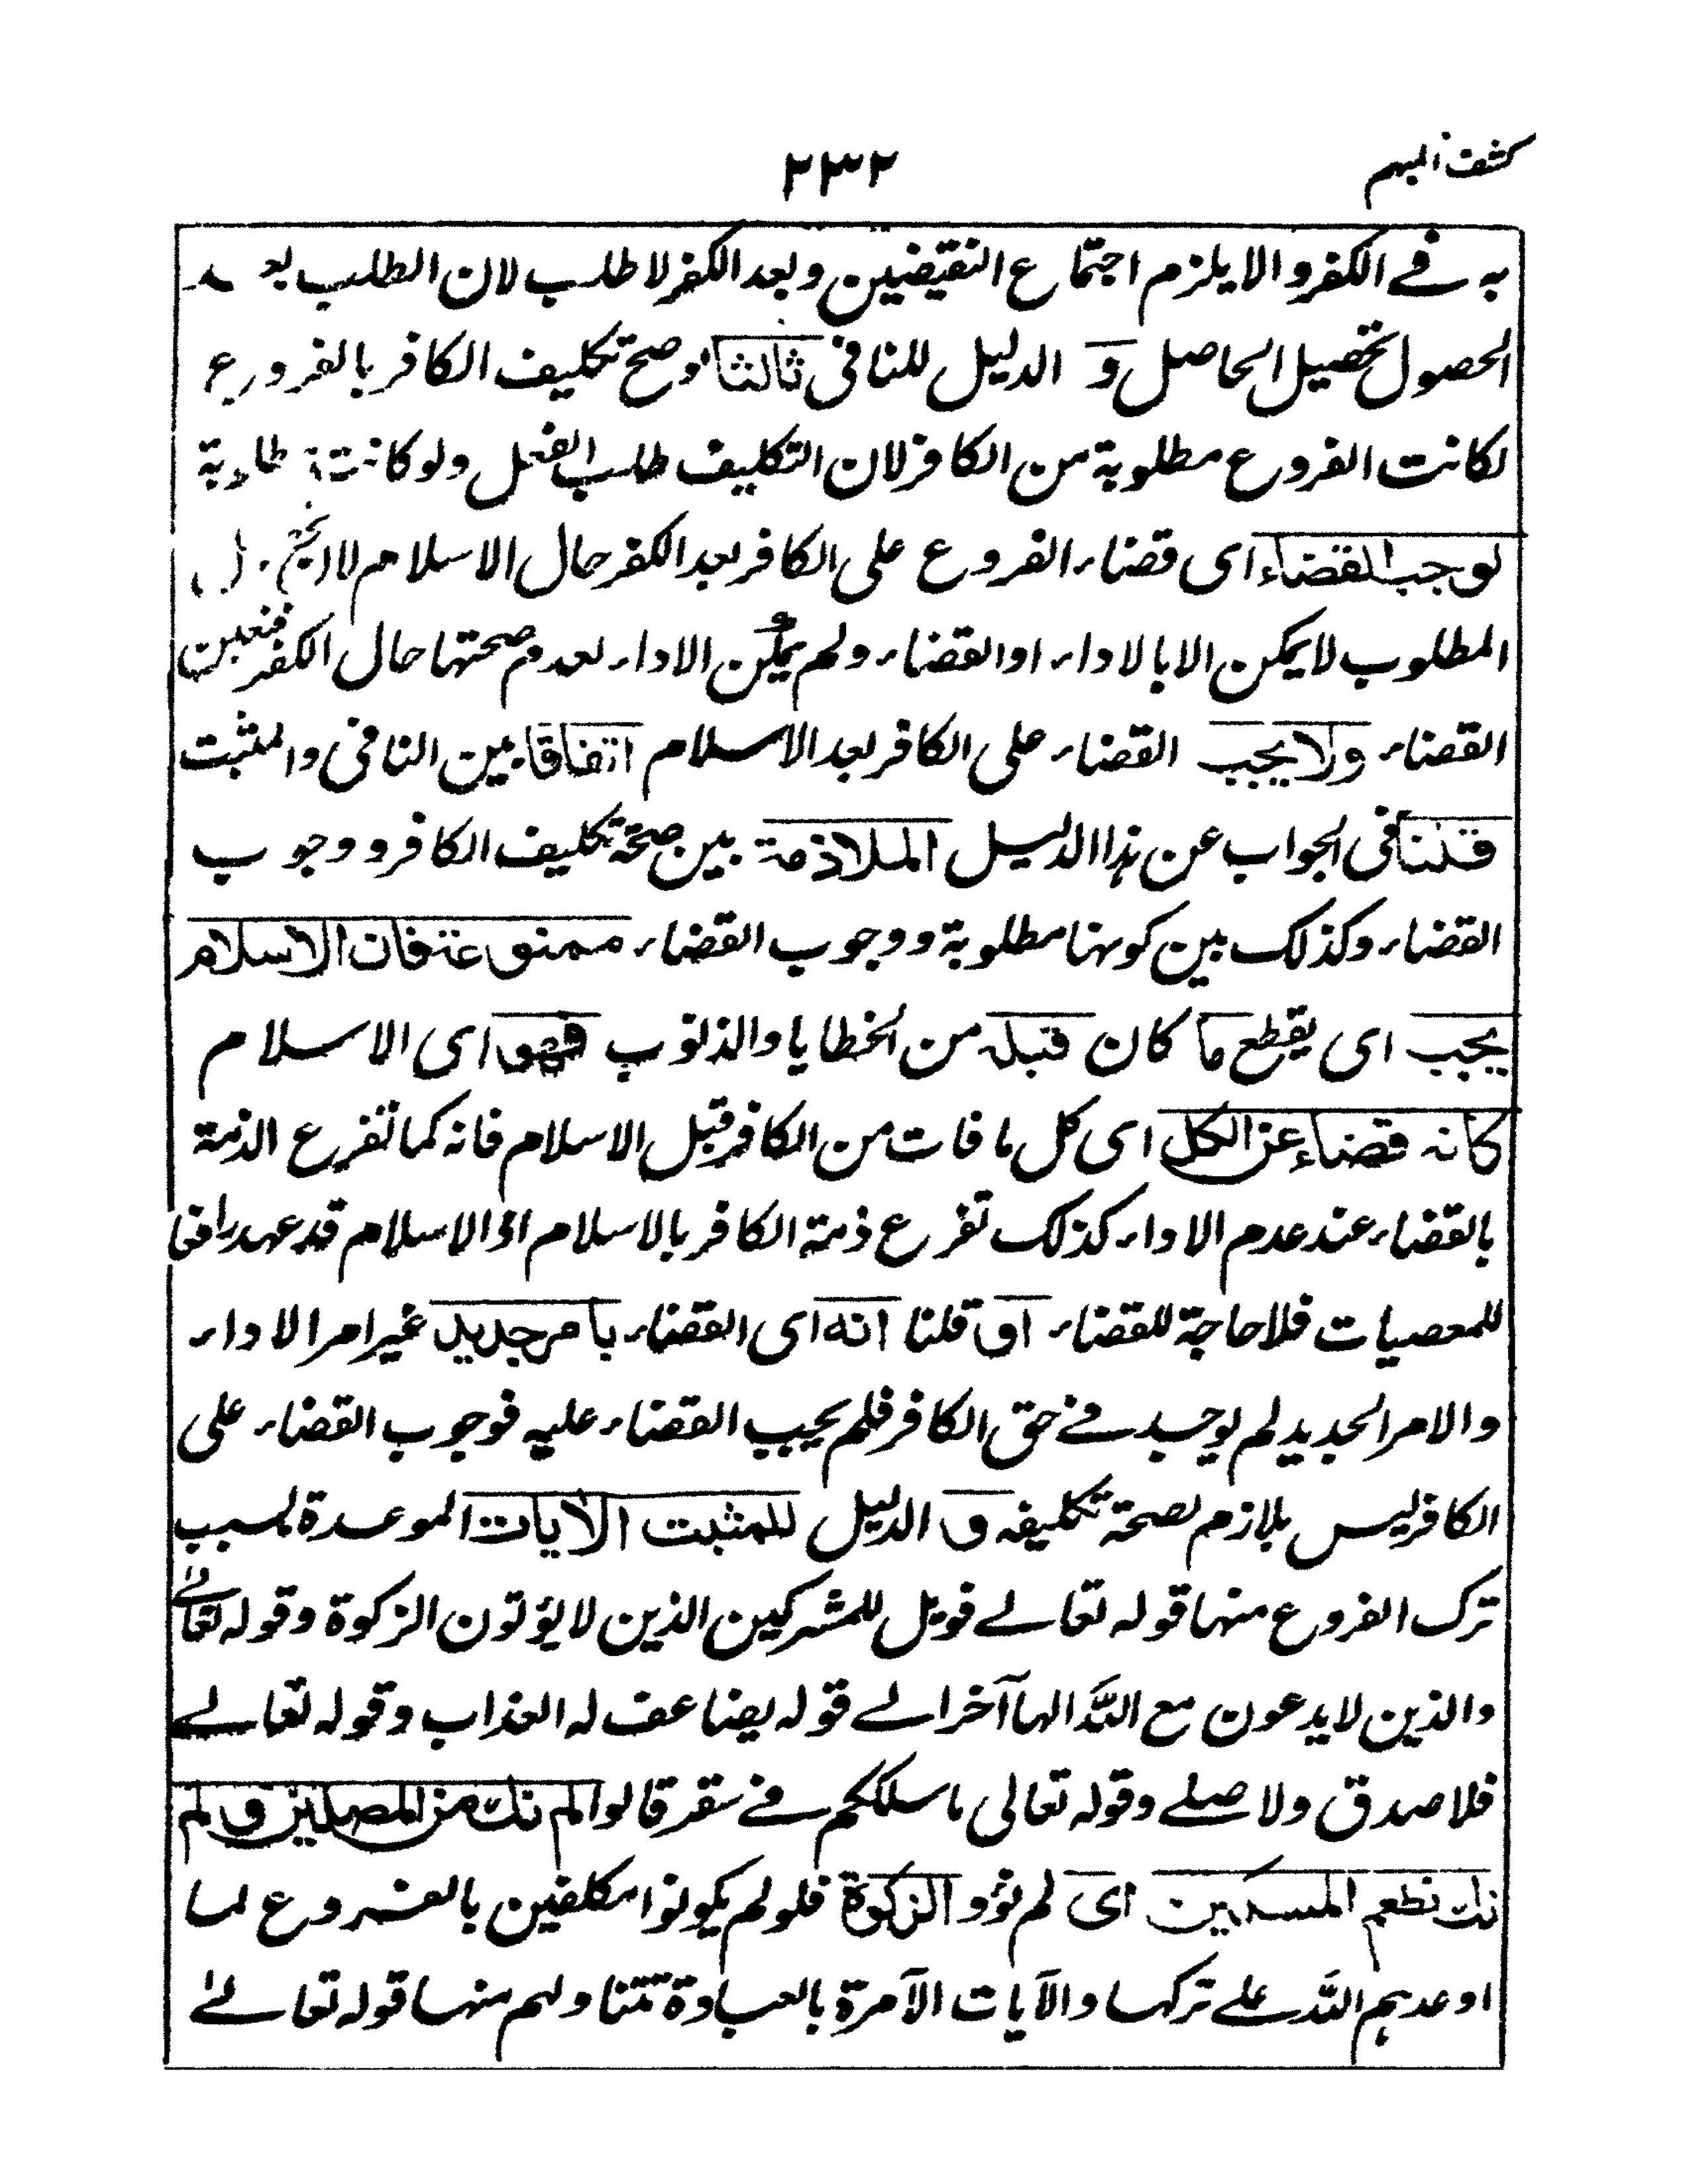 كشف المبهم
٢٣٢
به في الكفر والا يلزم اجتماع النقيضين وبعد الكفر لا طلب لان الطلب بعد
الحصول تحصيل الحاصل و الدليل للنافى ثالثا لو صح تكليف الكافر بالفروع
لكانت الفروع مطلوبة من الكافر لان التكليف طلب الفعل ولو كانت مطلوبة
لوجب القضاء اى قضاء الفروع على الكافر بعد الكفر حال الاسلام لان
المطلوب لا يمكن الا بالاداء او القضاء ولم يمكن الاداء لعدم صحتها حال الكفر فتعين
القضاء ولا يجب القضاء على الكافر بعد الاسلام اتفاقا بين النافى والمثبت
قلنا فى الجواب عن هذا الدليل الملازمة بين صحة تكليف الكافر ووجوب
القضاء وكذلك بين كونها مطلوبة ووجوب القضاء ممنوعة فان الاسلام
يجب اى يقطع ما كان قبله من الخطايا والذنوب فهو اى الاسلام
كانه قضاء عن الكل اى كل ما فات من الكافر قبل الاسلام فانه كما تفرغ الذمة
بالقضاء عند عدم الاداء كذلك تفرغ ذمة الكافر بالاسلام اذ الاسلام قد عهد رافعا
للمعصيات فلا حاجة للقضاء او قلنا انه اى القضاء بامر جديد غير امر الاداء
والامر الجديد لم يوجد في حق الكافر فلم يجب القضاء عليه فوجوب القضاء على
الكافر ليس بلازم لصحة تكليفه و الدليل للمثبت الايات الموعدة بسبب
ترك الفروع منها قوله تعالى فويل للمشركين الذين لا يؤتون الزكوة وقوله تعالى
والذين لا يدعون مع الله الها آخر الى قوله يضاعف له العذاب وقوله تعالى
فلا صدق ولا صلى وقوله تعالى ما سلككم في سقر قالوا لم نك من المصلين و لم
نك نطعم المسكين اى لم نؤد الزكوة فلو لم يكونوا مكلفين بالفروع لما
اوعدهم الله على تركها والآيات الآمرة بالعبادة تتناولهم منها قوله تعالى